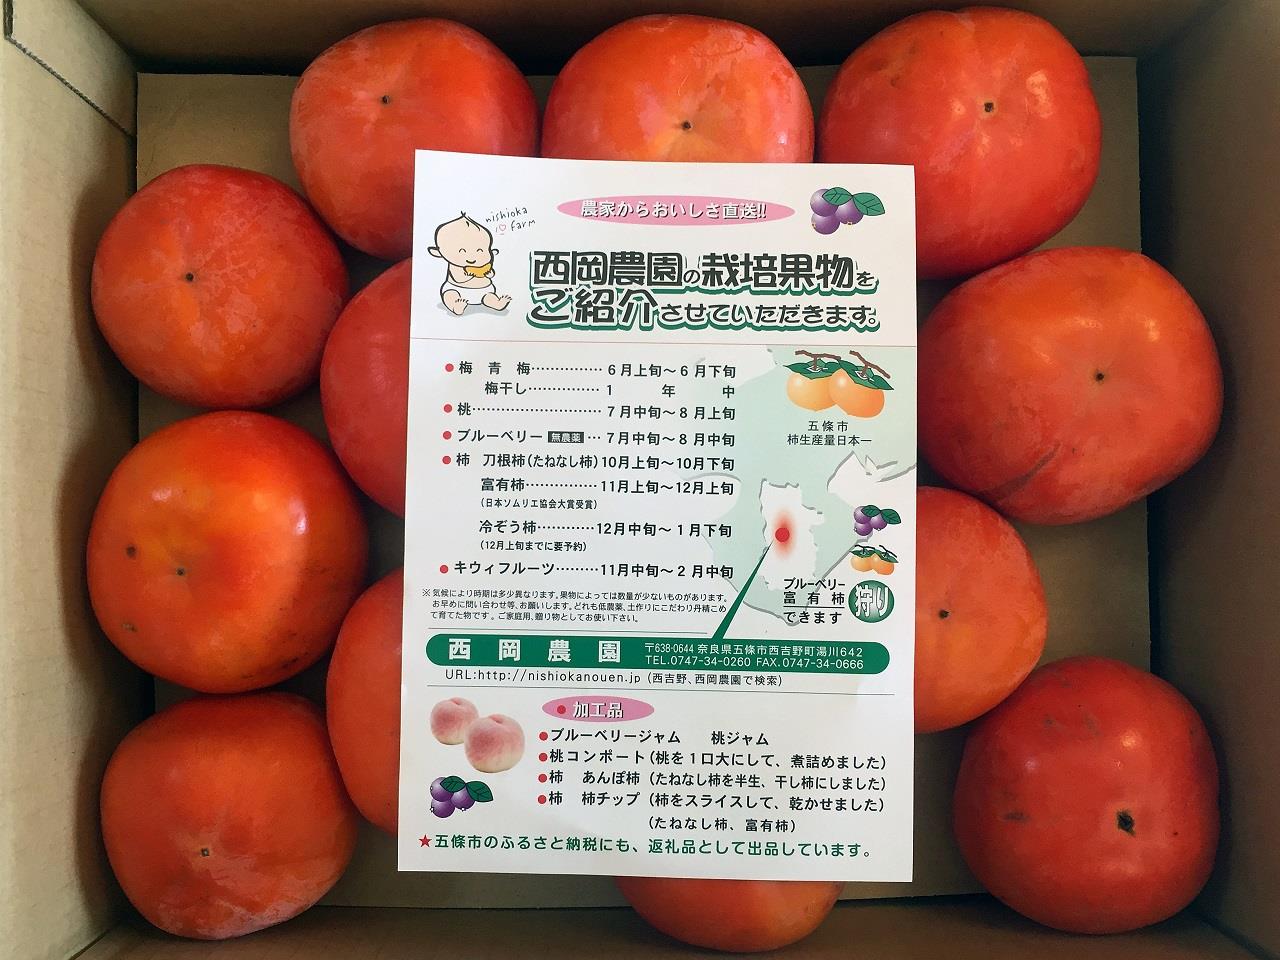 農家からおいしさ直送!!
nishioka
farm
西岡農園の栽培果物を
ご紹介させていただきます。
●梅 青 梅…………… 6月上旬〜6月下旬
梅干し…………… 1 年 中
●桃……………………… 7月中旬〜8月上旬
●ブルーベリー 無農薬 … 7月中旬〜8月中旬
●柿 刀根柿(たねなし柿) 10月上旬〜10月下旬
富有柿…………… 11月上旬〜12月上旬
(日本ソムリエ協会大賞受賞)
冷ぞう柿………… 12月中旬〜1月下旬
(12月上旬までに要予約)
●キウィフルーツ……… 11月中旬〜2月中旬
五條市
柿生産量日本一
ブルーベリー
富有柿
できます
狩り
※気候により時期は多少異なります。果物によっては数量が少ないものがあります。
お早めに問い合わせ等、お願いします。どれも低農薬、土作りにこだわり丹精こめ
て育てた物です。ご家庭用、贈り物としてお使い下さい。
西岡農園
〒638-0644 奈良県五條市西吉野町湯川642
TEL.0747-34-0260 FAX.0747-34-0666
URL:http://nishiokanouen.jp (西吉野、西岡農園で検索)
●加工品
●ブルーベリージャム 桃ジャム
●桃コンポート(桃を1口大にして、煮詰めました)
●柿 あんぽ柿 (たねなし柿を半生、干し柿にしました)
●柿 柿チップ (柿をスライスして、乾かせました)
(たねなし柿、富有柿)
★五條市のふるさと納税にも、返礼品として出品しています。